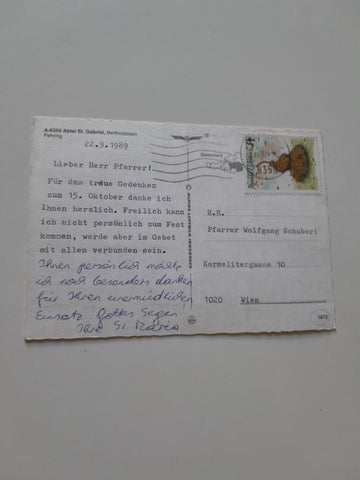 A-8350 Abtei St. Gabriel, Bertholdstein
Fehring
22.9.1989
Lieber Herr Pfarrer!
Für das treue Gedenken
zum 15. Oktober danke ich
Ihnen herzlich. Freilich kann
ich nicht persönlich zum Fest
kommen, werde aber im Gebet
mit allen verbunden sein.
Ihnen persönlich möchte
ich noch besonders danken
für Ihren unermüdlichen
Einsatz. Gottes Segen!
Ihre Sr. Maria
Steiermark
H.H.
Pfarrer Wolfgang Schubert
Karmelitergasse 10
1020 Wien